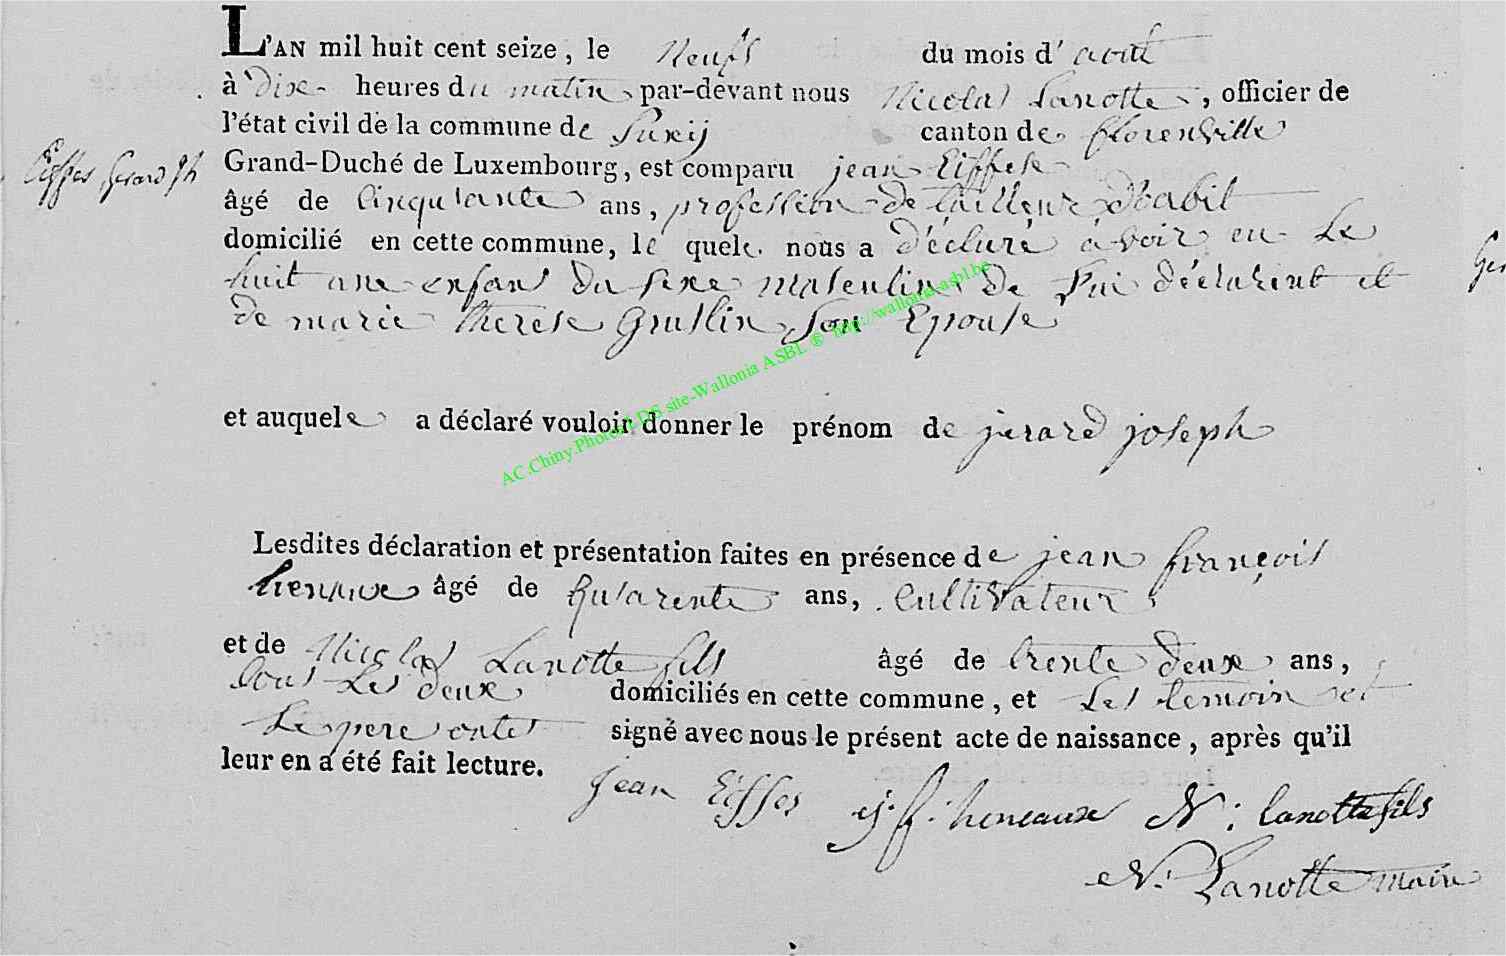 L'AN mil huit cent seize, le Neufs du mois d' aoùt
à dixe heures du matin par-devant nous Nicolas Lanotte, officier de
l'état civil de la commune de Suxij canton de florenville
Eiffes Gerard Jh
Grand-Duché de Luxembourg, est comparu jean Eiffese
âgé de Cinquiante ans, profession de tailleur d'habit
domicilié en cette commune, le quele nous a déclaré avoir eu Le
huit une enfans du sexe masculin de Lui déclarent et
de marie therese Gruslin son Epouse
et auquele a déclaré vouloir donner le prénom de jerard joseph
Lesdites déclaration et présentation faites en présence de jean françois
âgé de quarente ans, Cultivateur
et de Nicolas Lanotte fils âgé de trente deux ans,
tous Les deux domiciliés en cette commune, et Les temoin et
Le pere ontes signé avec nous le présent acte de naissance, après qu'il
leur en a été fait lecture.
jean Eiffes j. f. heneaux N: lanotte fils
N. Lanotte main
AC.Chiny.Photos DS site-Wallonia ASBL ® http://wallonia-asbl.be